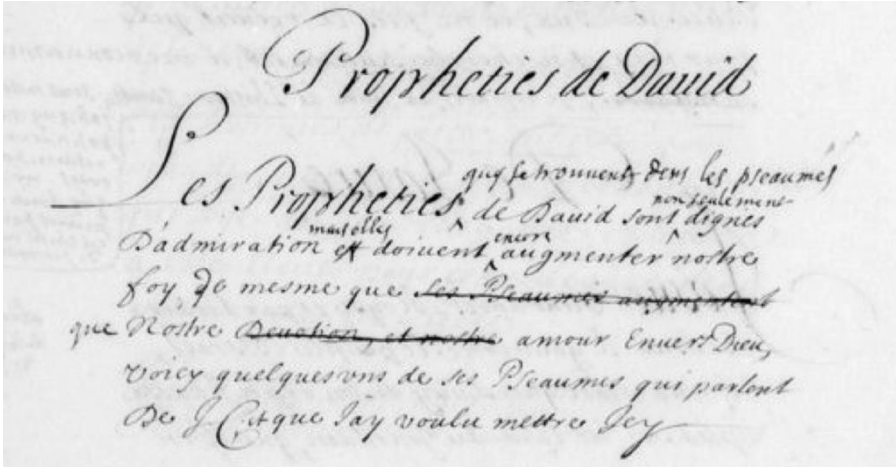 Propheties de Dauid
Les Propheties, quy se trouvent dens les pseaumes
de Dauid sont non seulement dignes
D'admiration mais elles doivent encore augmenter nostre
foy de mesme que ses Pseaumes augmentent
que Nostre Devotion, et nostre amour Envers Dieu,
voicy quelques vns de ses Pseaumes qui parlent
De J. C. et que Jay voulu mettre Jcy